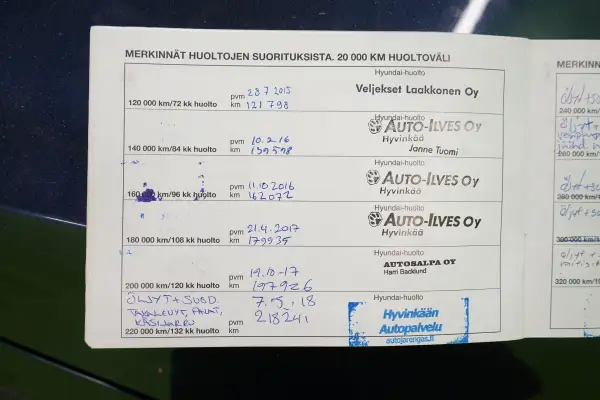 MERKINNÄT HUOLTOJEN SUORITUKSISTA. 20 000 KM HUOLTOVÄLI
Hyundai-huolto
pvm 28.7.2015
Veljekset Laakkonen Oy
120 000 km/72 kk huolto km 121 798
Hyundai-huolto
AUTO-ILVES Oy
pvm 10.2.16
Hyvinkää
140 000 km/84 kk huolto km 139598
Janne Tuomi
Hyundai-huolto
AUTO-ILVES Oy
pvm 11.10.2016
Hyvinkää
km/96 kk huolto km 162072
Hyundai-huolto
AUTO-ILVES Oy
pvm 21.4.2017
Hyvinkää
180 000 km/108 kk huolto km 179935
Hyundai-huolto
AUTOSALPA OY
pvm 19.10-17
Harri Backlund
200 000 km/120 kk huolto km 197926
Hyundai-huolto
ÖLJYT + SUOD.
7.5.18
Hyvinkään
KÄSIJARRU
pvm
218241
Autopalvelu
220 000 km/132 kk huolto km
autojarengas.fi
MERKINN
240 000 km/
320 000 km/1